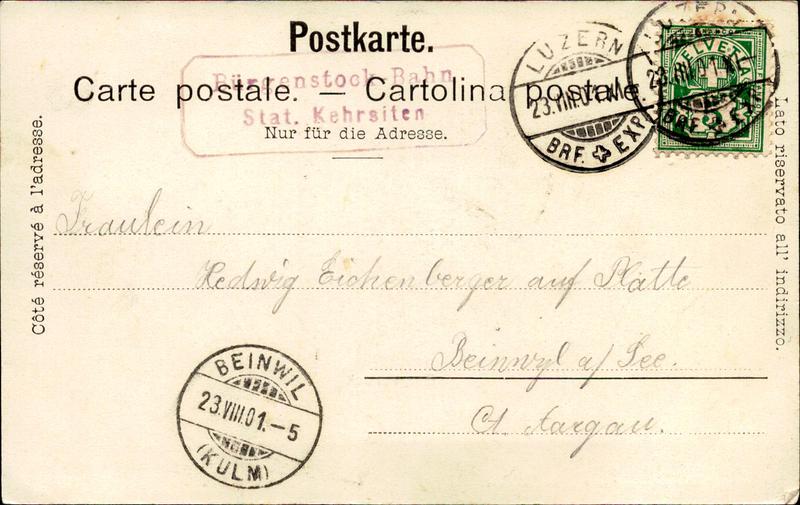 Postkarte.
Carte postale. — Cartolina postale.
Nur für die Adresse.
Bürgenstock-Bahn
Stat. Kehrsiten
LUZERN
23.VIII.01.
BRF. EXP.
LUZERN
23.VIII.01.
BRF. EXP.
HELVETIA
Côté réservé à l'adresse.
Lato riservato all' indirizzo.
Fräulein
Hedwig Eichenberger auf Platte
Beinwyl a/See.
Ct. Aargau.
BEINWIL
23.VIII.01.-5
(KULM)